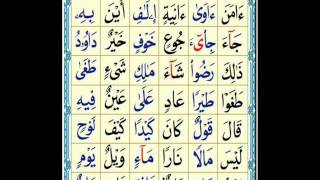 ءَامَنَ ءَاوٰى ءَانِيَةٍ اِلٰفِ أَيْنَ بِهٖ
جَآءَ جِاْىۡٓءَ جُوْعٍ خَوْفٍ خَيْرٌ دَاوٗدُ
ذٰلِكَ رَضُوْا شَآءَ مٰلِكِ شَىْءٍ طَغٰى
طَغَوْا طَيْرًا عَادٍ عَلٰى عَيْنٌ فِيْهِ
قَالَ قَوْلٌ كَانَ كَيْدًا كَيْفَ لَوْحٍ
لَيْسَ مَالًا نَارًا مَآءً وَيْلٌ يَوْمٍ